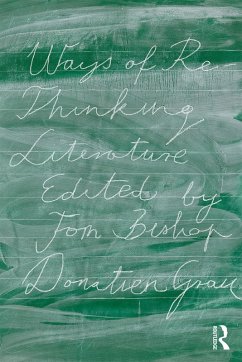 Ways of Re-
Thinking
Literature
Edited by
Tom Bishop
Donatien Grau
R
ROUTLEDGE